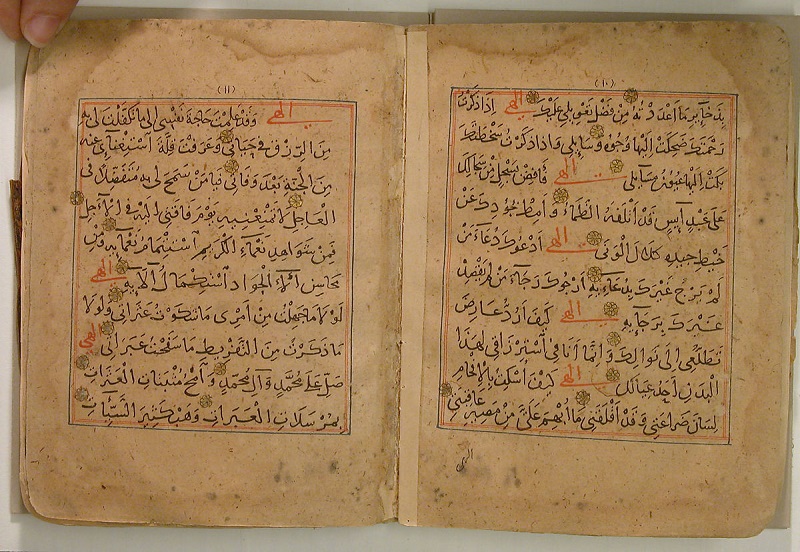 (١٠)
بذخاير ما اعددته من فضل تعويلي عليك الهي اذا ذكرت
رحمتك ضحكت اليها وجوه وسايلي واذا ذكرت سخطتك
بكت لها عيون مسايلي الهي فافض بسجل من سجالك
على عبد آيس قد اتلفه الظماء و امط بجودك عن
خيط جيده كلال الونى الهي ادعوك دعاء من
لم يرج غيرك بدعايه ارجوك رجاء من لم يقصد
غيرك برجايه الهي كيف ارد عارض
تطلعي الى نوالك وانما انا في استرزاقي لهذا
البدن احد عيالك الهي كيف اسكت بالافحام
لسان ضراعتي وقد اقلقني ما ابهم علي من مصير عاقبتي
الهي
(١١)
الهي وقد علمت حاجة نفسي الى ما تكفلت لها به
من الرزق في حياتي وعرفت قلة استغنائي عنه
من الجنة بعد وفاتي فيا من سمح لي به متفضلا في
العاجل لا تمنعنيه يوم فاقتي اليه في الآجل
فمن شواهد نعماء الكريم استتمام نعمايه ومن
محاسن آلاء الجواد استكمال آلايه الهي
لولا ما جهلت من امري ما شكوت عثراتي ولولا
ما ذكرت من التفريط ما سفحت عبراتي الهي
صل على محمد وآل محمد وامح مثبتات العثرات
بمرسلات العبرات وهب كثير السيئات